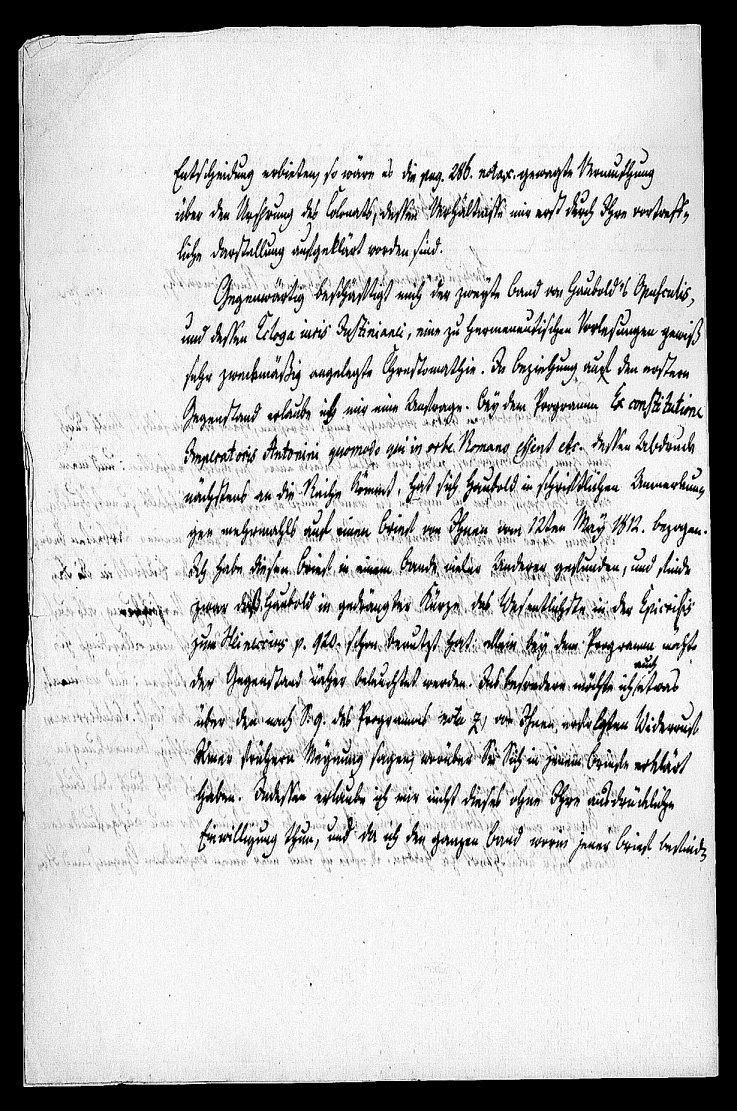 Entscheidung erbieten, so wäre es die pag. 286. nota x. gewagte Vermuthung
über den Ursprung des Colonats, dessen Verhältnisse mir erst durch Ihre vortreff-
liche Darstellung aufgeklärt worden sind.
Gegenwärtig beschäftigt mich der zweyte Band von Haubold's Opusculis,
und dessen Ecloga iuris Justinianei, eine zu hermeneutischen Vorlesungen gewiß
sehr zweckmäßig angelegte Chrestomathie. In Beziehung auf den erstern
Gegenstand erlaube ich mir eine Anfrage. Bey dem Programm Ex constitutione
Imperatoris Antonini quomodo qui in orbe Romano essent etc. dessen Abdruck
nächstens an die Reihe kömmt, hat sich Haubold in schriftlichen Anmerkun-
gen mehrmahls auf einen Brief von Ihnen vom 12ten May 1812. bezogen.
Ich habe diesen Brief in einem Bande vieler Anderer gefunden, und finde
zwar daß Haubold in gedrängter Kürze das Wesentlichste in der Epicrisis
zum Heineccius p. 920. schon benutzt hat: allein bey dem Programm möchte
der Gegenstand näher beleuchtet werden. Insbesondere möchte ich auch etwas
über den nach S. 9. des Programms nota z, von Ihnen erfolgten Widerruf
Ihrer frühern Meynung sagen, worüber Sie Sich in jenem Briefe erklärt
haben. Indessen erlaube ich mir nicht dieses ohne Ihre ausdrückliche
Einwilligung thun, und da ich den ganzen Band worin jener Brief befind-